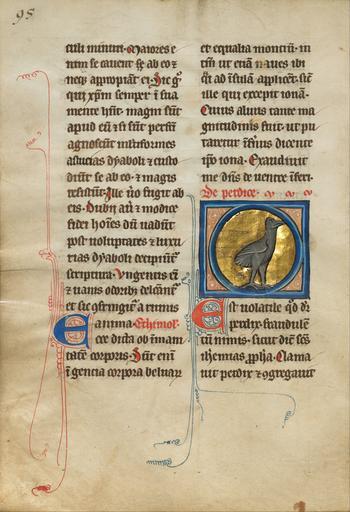 95
culi minuti. Maiores e
nim se cauent ⁊ ab eo ⁊
neqꝫ appropiant ei. Sic gͦ
qui xp̄m semper ī sua
mente hn̄t. magni sūt
apud eū ⁊ si sūt perfcī
agnoscūt multiformes
astucias dyaboli ⁊ custo
diūt se ab eo. ⁊ magis
resistūt. Ille ūo fugit ab
eis. Dubii aūt ⁊ modice
fidei hoīes dū uadūt
post uoluptates ⁊ luxu
rias dyaboli decipiūt
scriptura. Vngentis eī
⁊ uariis odoribꝫ
et sic ꝯfringit a ruinis
anima. Ethimol'
dicta ob īman
tatē corporis. Sūt enī
ingencia corpora beluar
et equalia montiū. in
ut enī naues ibi
ad īsulā applicēt. sic
ille qui excepit ionā.
Cuius aluus tante ma
gnitudinis fuit ut pu
taretur īfernus dicente
ip̄o iona. Exaudiuit
me dn̄s de uentre īferi.
De perdice.
Est uolatile qd̄ dr̄
perdix fraudulē
tū nimis. sicut dic̄ scs̄
iheremias ꝓpha. Clama
uit perdix ⁊ ꝯgregauit